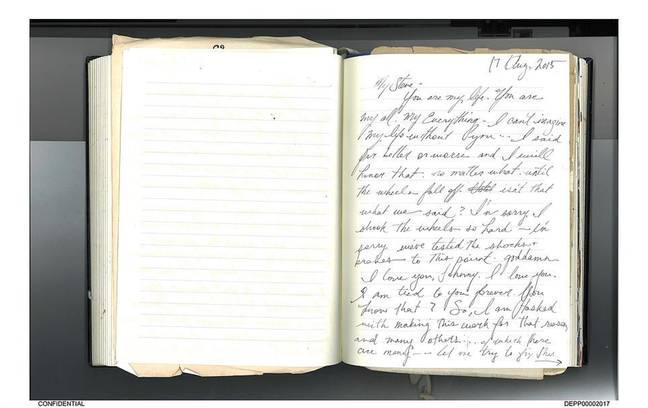 17 Aug. 2015
My Steve -
You are my life. You are
my all. My Everything. I can't imagine
my life without you... I said
for better or worse and I will
honor that - no matter what - until
the wheels fall off. isn't that
what we said? I'm sorry I
shook the wheels so hard - I'm
sorry we've tested the shocks +
brakes - to this point. goddamn
I love you, Johnny. I love you.
I am tied to you forever. You
know that? So, I am tasked
with making this work for that reason
and many others.... of which there
are many -- let me try to fix this
CONFIDENTIAL
DEPP00002017